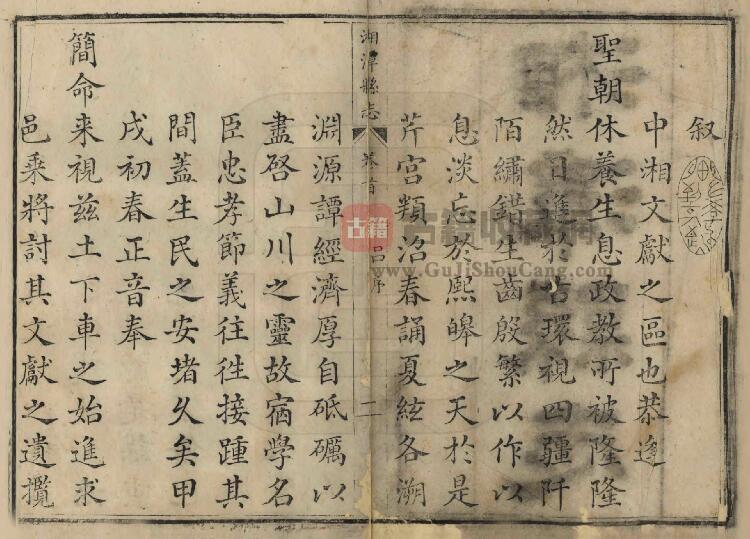 叙
中湘文獻之區也恭逢
聖朝休養生息政教所被隆隆
然日進於古環視四疆阡
陌繡錯生齒殷繁以作以
息淡忘於熙皞之天於是
芹宮類沼春誦夏絃各溯
湘潭縣志 卷首 呂序 二
淵源譚經濟厚自砥礪以
盡啓山川之靈故宿學名
臣忠孝節義往往接踵其
間蓋生民之安堵久矣甲
戌初春正音奉
簡命来視茲土下車之始進求
邑乘將討其文獻之遺攬
古籍 古籍收藏网
www.GuJiShouCang.com